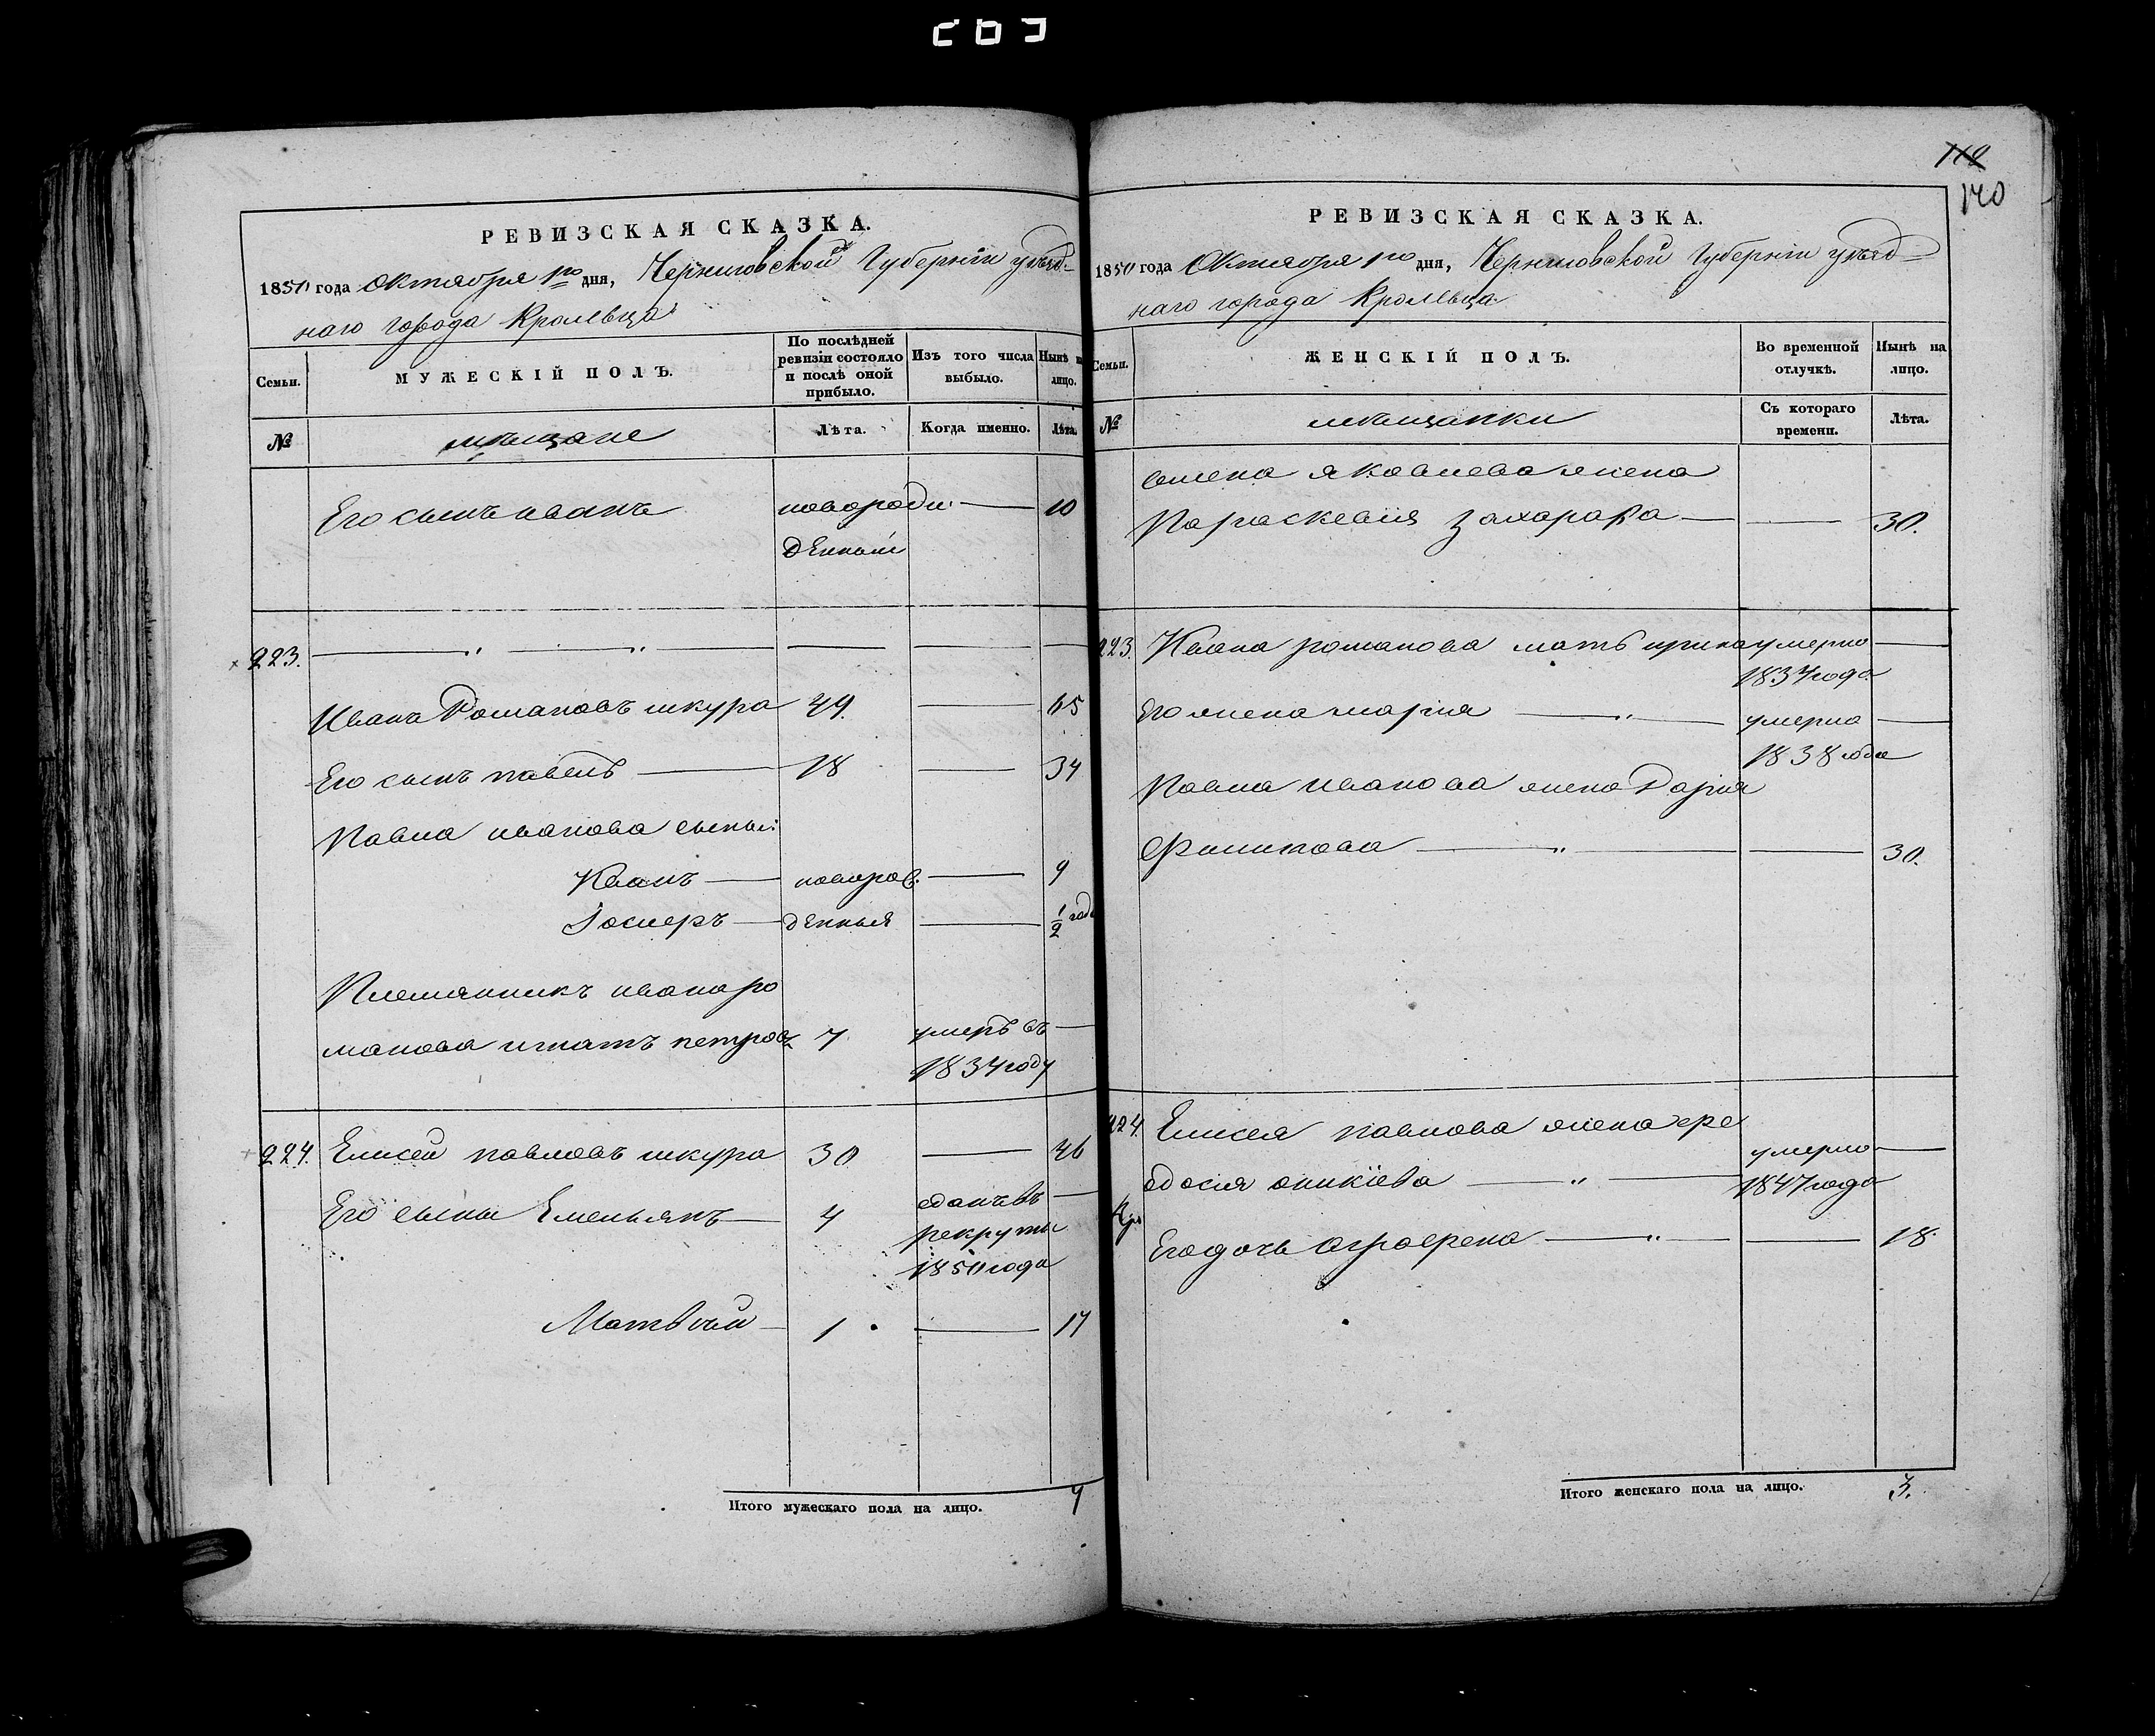 РЕВИЗСКАЯ СКАЗКА.
1850 года Октября 1го дня, Черниговской Губернiи уѣзд-
наго города Кролевца
Семьи. МУЖЕСКІЙ ПОЛЪ. По послѣдней ревизіи состояло и послѣ оной прибыло. Изъ того числа выбыло. Нынѣ на лицо.
№ мѣщане Лѣта. Когда именно. Лѣта.
Его сынъ иванъ новорож 10
денный
223.
Иванъ Романовъ шкура 49. 65
Его сынъ павелъ 18 34
Павла иванова сыны:
Иванъ новорож 9
Іосиеръ денныя 1/2 года
Племянникъ ивана ро
манова игнатъ петровъ 7 умеръ въ
1834 году
224. Елисей павловъ шкура 30 46
Его сыны Емельянъ 4 сданъ въ
рекруты
1850 года
Матвѣй 1 17
Итого мужескаго пола на лицо. 7
118
140
РЕВИЗСКАЯ СКАЗКА.
1850 года Октября 1го дня, Черниговской Губернiи уѣзд-
наго города Кролевца
Семьи. ЖЕНСКІЙ ПОЛЪ. Во временной отлучкѣ. Нынѣ на лицо.
№ мѣщанки Съ котораго времени. Лѣта.
яковлева жена
Параскевiя Захарова 30.
223. Ивана романова мать ирина умерла
1834 года
Его жена марiя умерла
1838 года
Павла иванова жена Дарiя
Филипова 30.
224. Елисея павлова жена фе
одосiя оникiева умерла
1847 года
Его дочь аграфена 18.
Итого женскаго пола на лицо. 3.